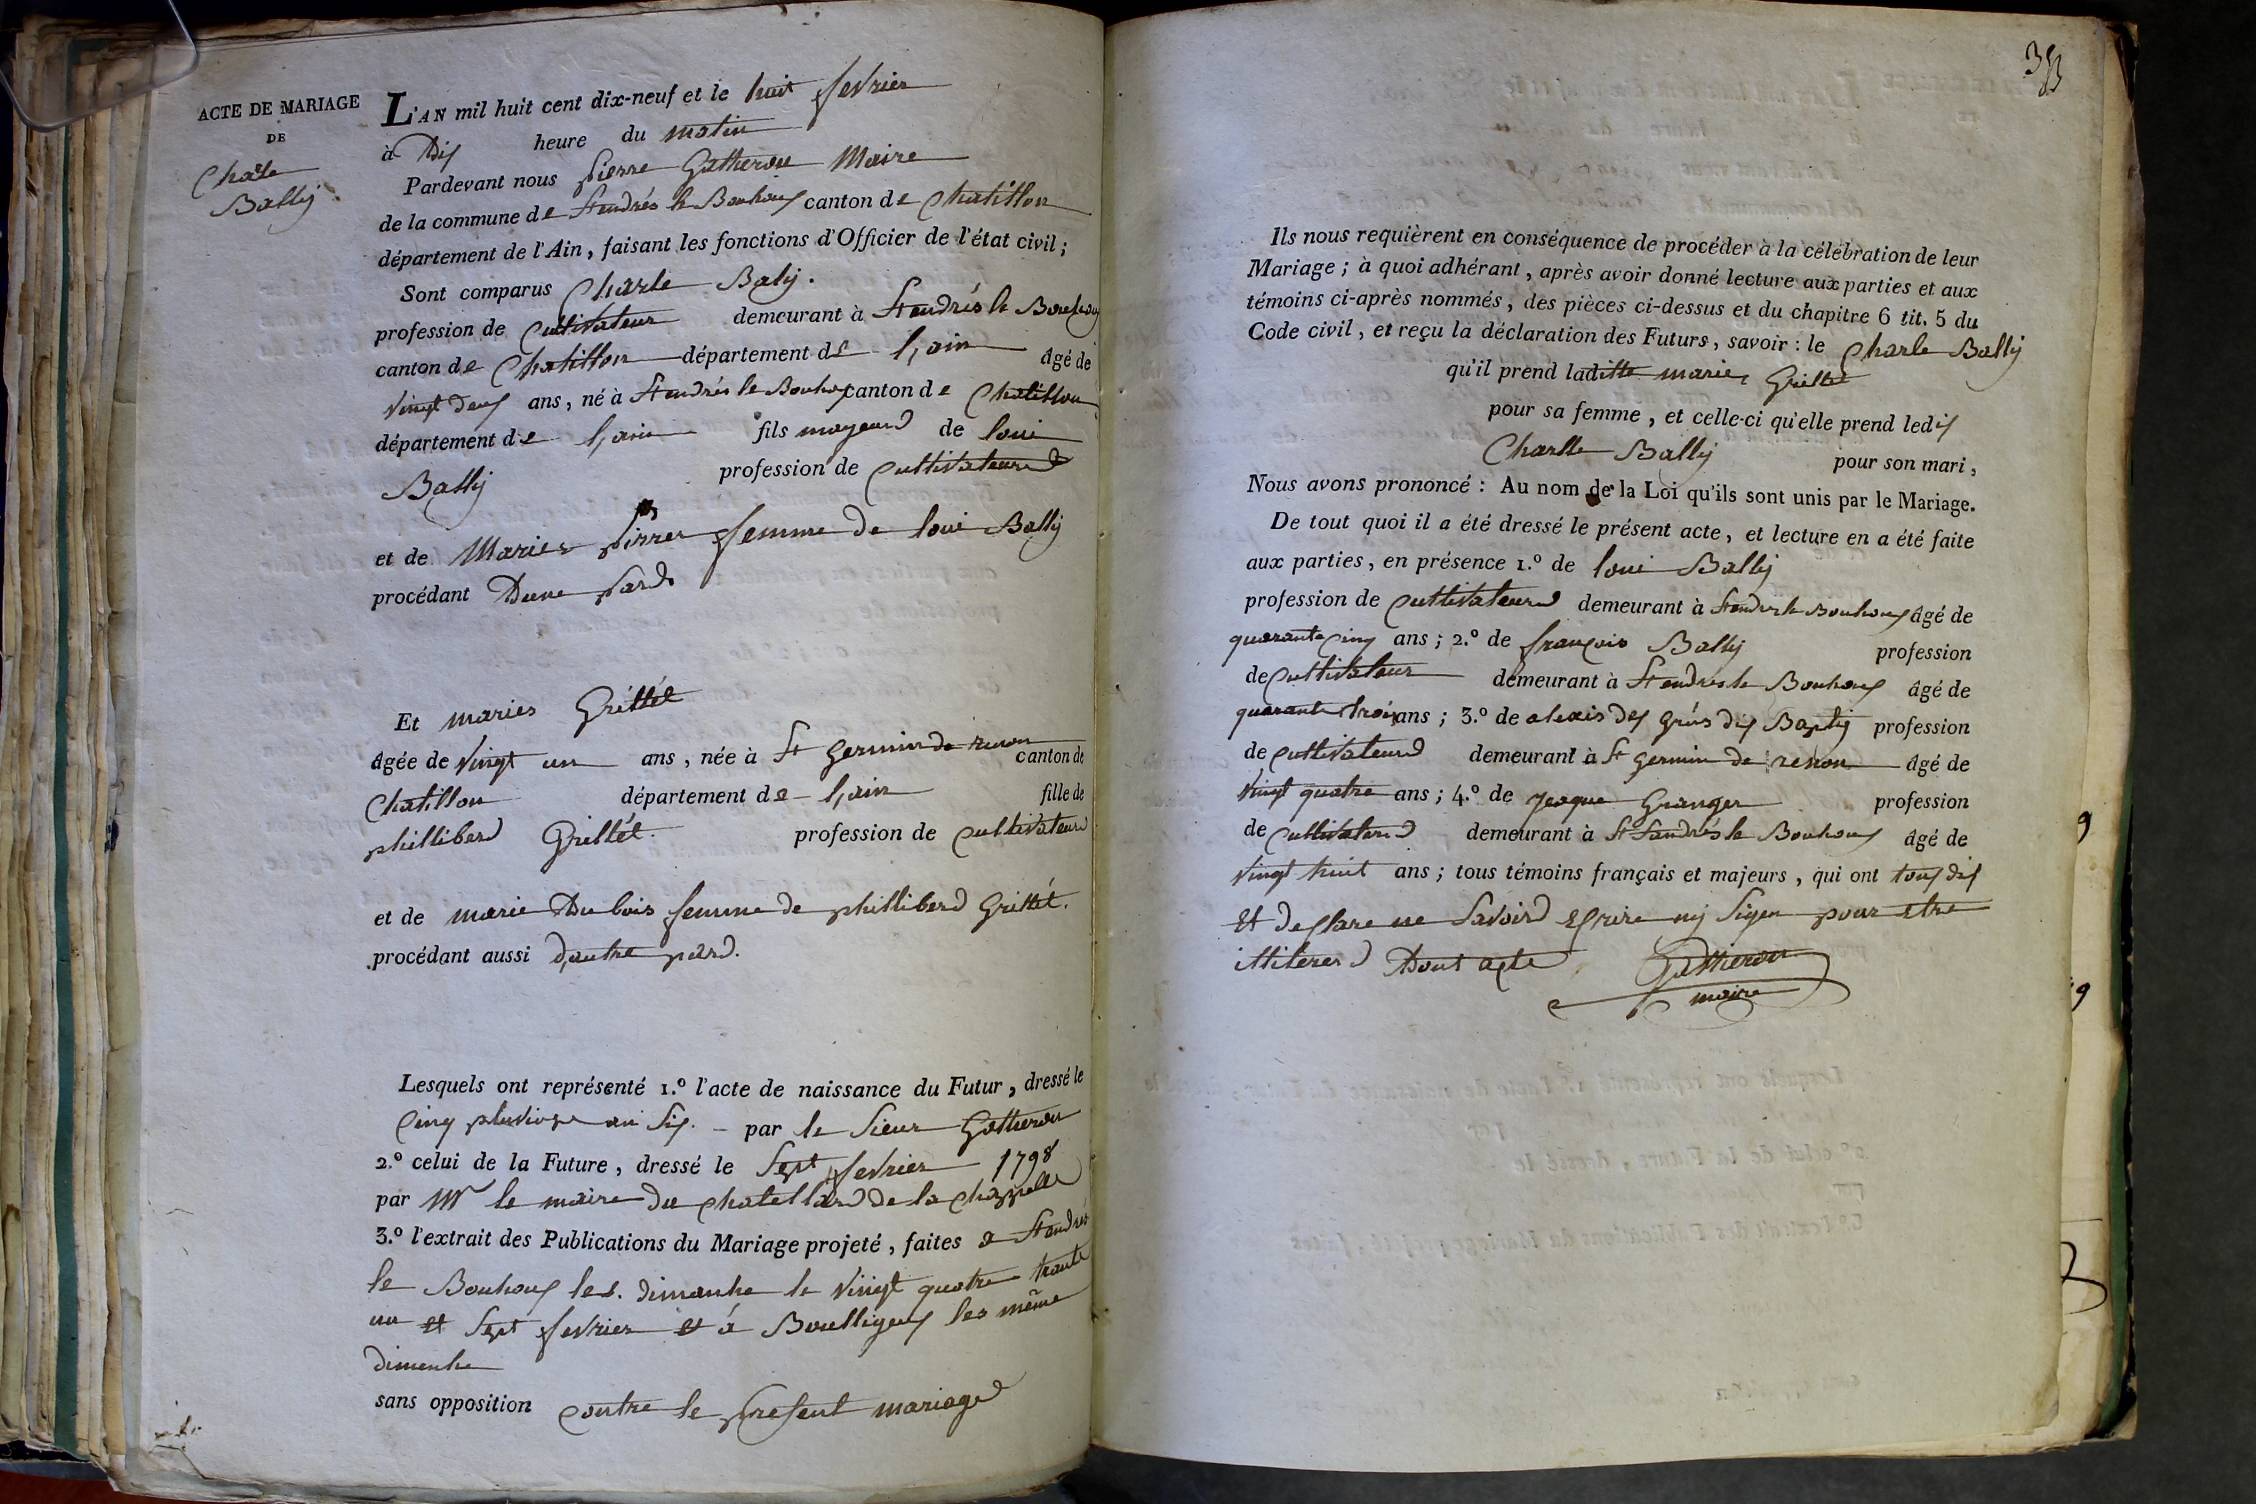 ACTE DE MARIAGE
DE
Charle
Bally
L'AN mil huit cent dix-neuf et le huit fevrier
à Dix heure du matin
Pardevant nous pierre Gatheron Maire
de la commune de St andrés le Bouhoux canton de Chatillon
département de l'Ain, faisant les fonctions d'Officier de l'état civil;
Sont comparus Charle Baly.
profession de Cultivateur demeurant à St andrés le Bouhoux
canton de Chatillon département de l'ain âgé de
vingt deux ans, né à St andrés le Bouhox canton de Chatillon
département de l'ain fils mageur de loui
Bally profession de Cultivateur
et de Marie pirrer femme de loui Bally
procédant Dune pard
Et marie Grillét
âgée de vingt un ans, née à St Germin de renon canton de
Chatillon département de l'ain fille de
philliberd Grillét. profession de cultivateur
et de marie Du bois femme de philliberd Grillét.
procédant aussi d'autre pard.
Lesquels ont représenté 1.º l'acte de naissance du Futur, dressé le
Cinq pluviose an Six. par le Sieur Gatheron
2.º celui de la Future, dressé le Sept fevrier 1798
par Mr le maire du chatellard de la chappelle
3.º l'extrait des Publications du Mariage projeté, faites a St andrés
le Bouhoux les. dimanhe le vingt quatre trante
un et Sept fevrier et á Boulligeux les même
dimenhe
sans opposition contre le presant mariage
33
Ils nous requièrent en conséquence de procéder à la célébration de leur
Mariage; à quoi adhérant, après avoir donné lecture aux parties et aux
témoins ci-après nommés, des pièces ci-dessus et du chapitre 6 tit. 5 du
Code civil, et reçu la déclaration des Futurs, savoir: le Charle Bally
qu'il prend laditte marie Grillet
pour sa femme, et celle-ci qu'elle prend ledix
Charlle Bally pour son mari,
Nous avons prononcé: Au nom de la Loi qu'ils sont unis par le Mariage.
De tout quoi il a été dressé le présent acte, et lecture en a été faite
aux parties, en présence 1.º de loui Bally
profession de cultivateur demeurant à St andres le Bouhoux âgé de
quarante cinq ans; 2.º de françois Bally profession
de cultivateur demeurant à St andres le Bouhoux âgé de
quarante trois ans; 3.º de alexis des Grús dix Baptis profession
de cultivateur demeurant à St germin de renon âgé de
vingt quatre ans; 4.º de Jeaque Granger profession
de cultivateur demeurant à St Sandrés le Bouhoux âgé de
vingt huit ans; tous témoins français et majeurs, qui ont tous dix
et de clare ne Savoird escrire nÿ Signer pour etre
illiterer Dont acte. Gatheron
maire